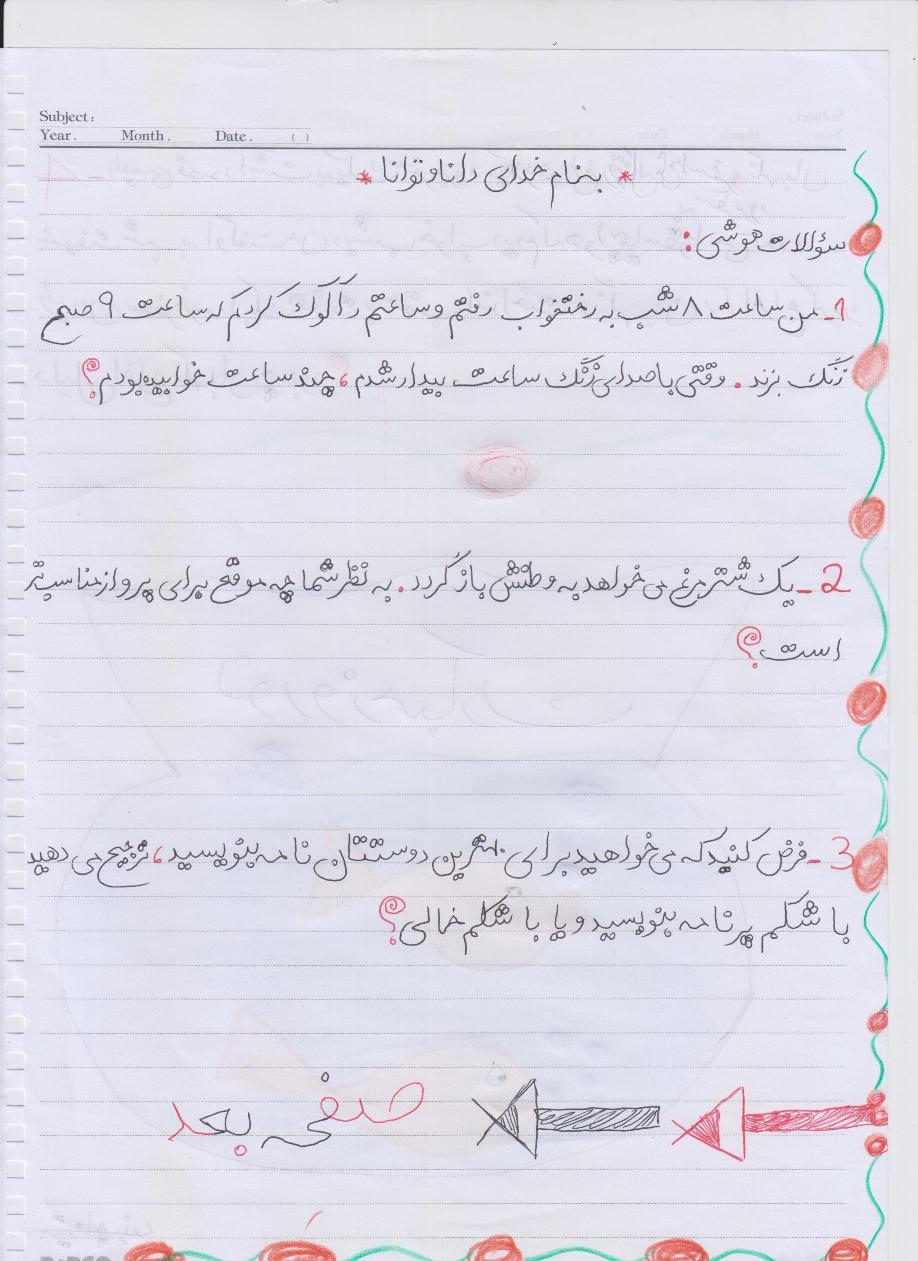 Subject:
Year. Month. Date. ( )
* بنام خدای دانا و توانا *
سؤالات هوشی:
1- من ساعت ۸ شب به رختخواب رفتم و ساعتم را کوک کردم که ساعت ۹ صبح
زنگ بزند. وقتی با صدای زنگ ساعت بیدار شدم، چند ساعت خوابیده بودم؟
2- یک شترمرغ می خواهد به وطنش باز گردد. به نظر شما چه موقع برای پرواز مناسب تر
است؟
3- فرض کنید که می خواهید برای بهترین دوستتان نامه بنویسید، ترجیح می دهید
با شکم پر نامه بنویسید و یا با شکم خالی؟
صفحه بعد